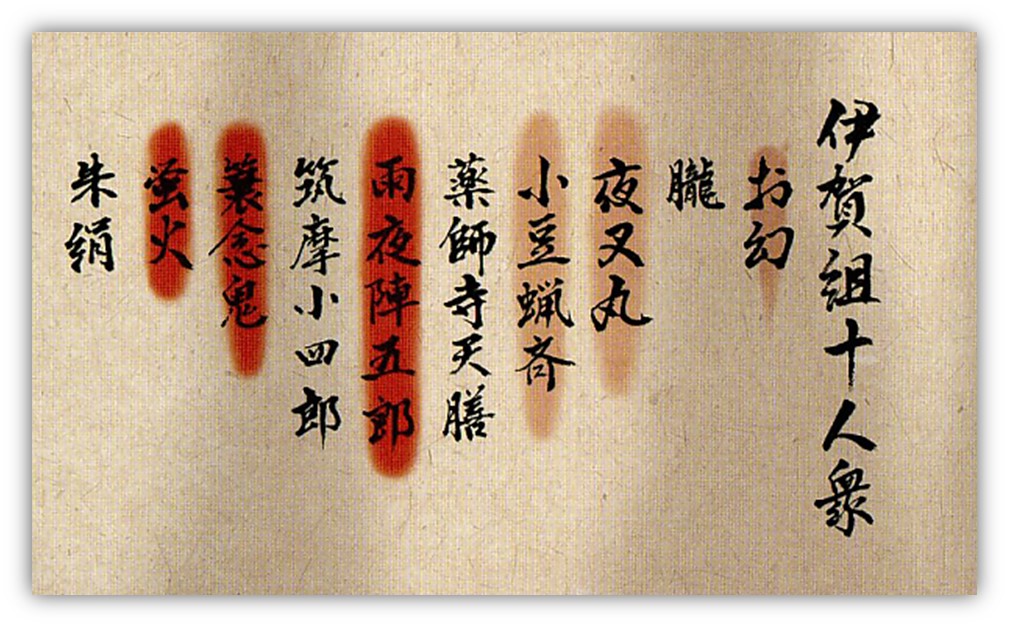 伊賀組十人衆
お幻
朧
夜叉丸
小豆蝋斉
薬師寺天膳
雨夜陣五郎
筑摩小四郎
蓑念鬼
蛍火
朱絹